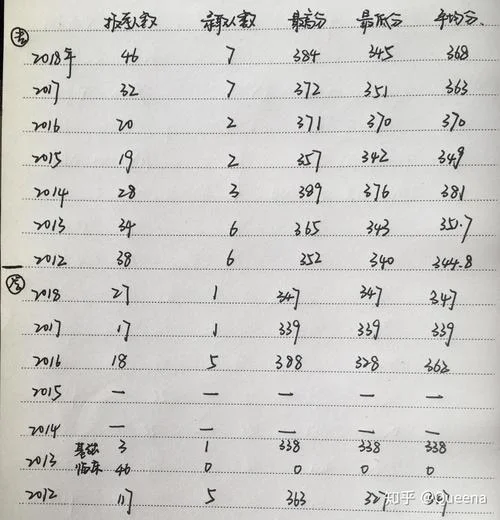 报考人数 录取人数 最高分 最低分 平均分
2018年 46 7 384 345 368
2017 32 7 372 351 363
2016 20 2 371 370 370
2015 19 2 357 342 349
2014 28 3 389 376 381
2013 34 6 365 343 351.7
2012 38 6 352 340 344.8
2018 27 1 347 347 347
2017 17 1 339 339 339
2016 18 5 388 328 362
2015 — — — — —
2014 — — — — —
基础 3 1 338 338 338
2013
临床 46 0 0 0 0
2012 17 5 363 327
知乎 @Queena